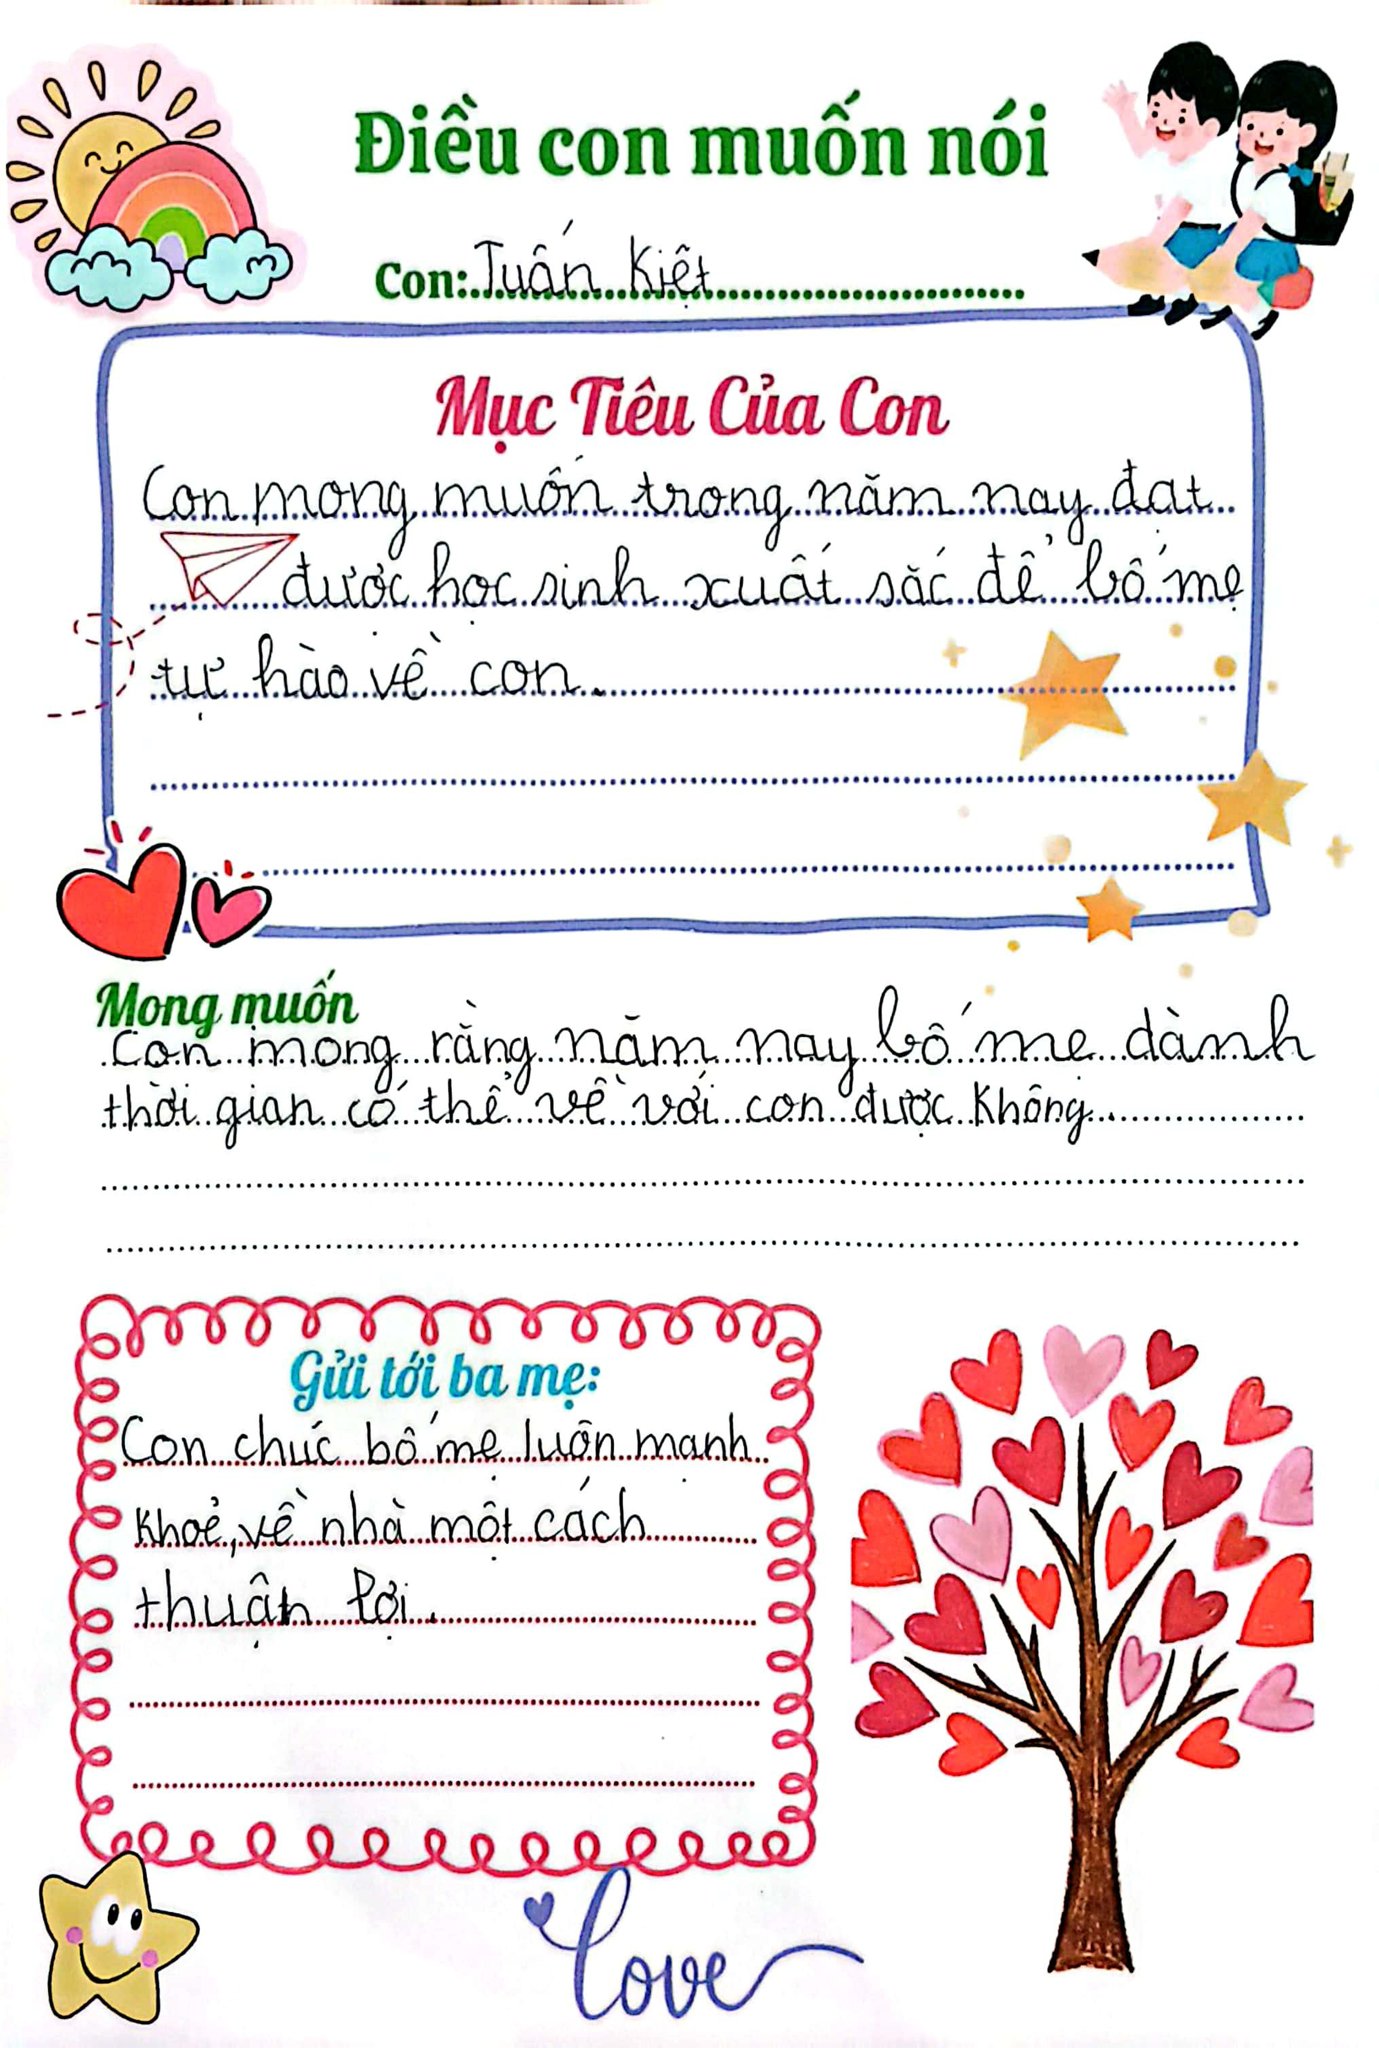 Điều con muốn nói
Con: Tuấn Kiệt
Mục Tiêu Của Con
Con mong muốn trong năm nay đạt
được học sinh xuất sắc để bố mẹ
tự hào về con.
Mong muốn
Con mong rằng năm nay bố mẹ dành
thời gian có thể về với con được không
Gửi tới ba mẹ:
Con chúc bố mẹ luôn mạnh
khoẻ, về nhà một cách
thuận lợi.
love